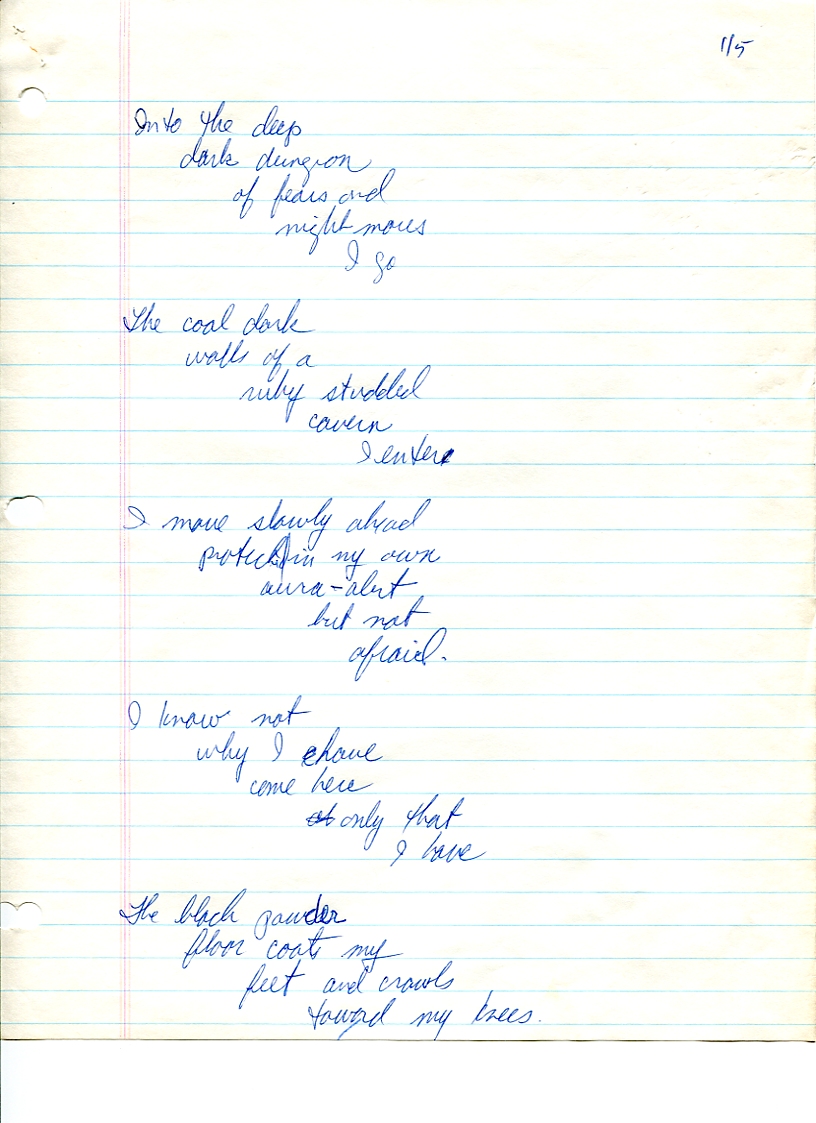 1/5
Into the deep
dark dungeon
of fears and
nightmares
I go
The coal dark
walls of a
ruby studded
cavern
I enter
I move slowly ahead
protected in my own
aura-alert
but not
afraid.
I know not
why I have
come here
only that
I have
The black powder
floor coats my
feet and crawls
toward my knees.